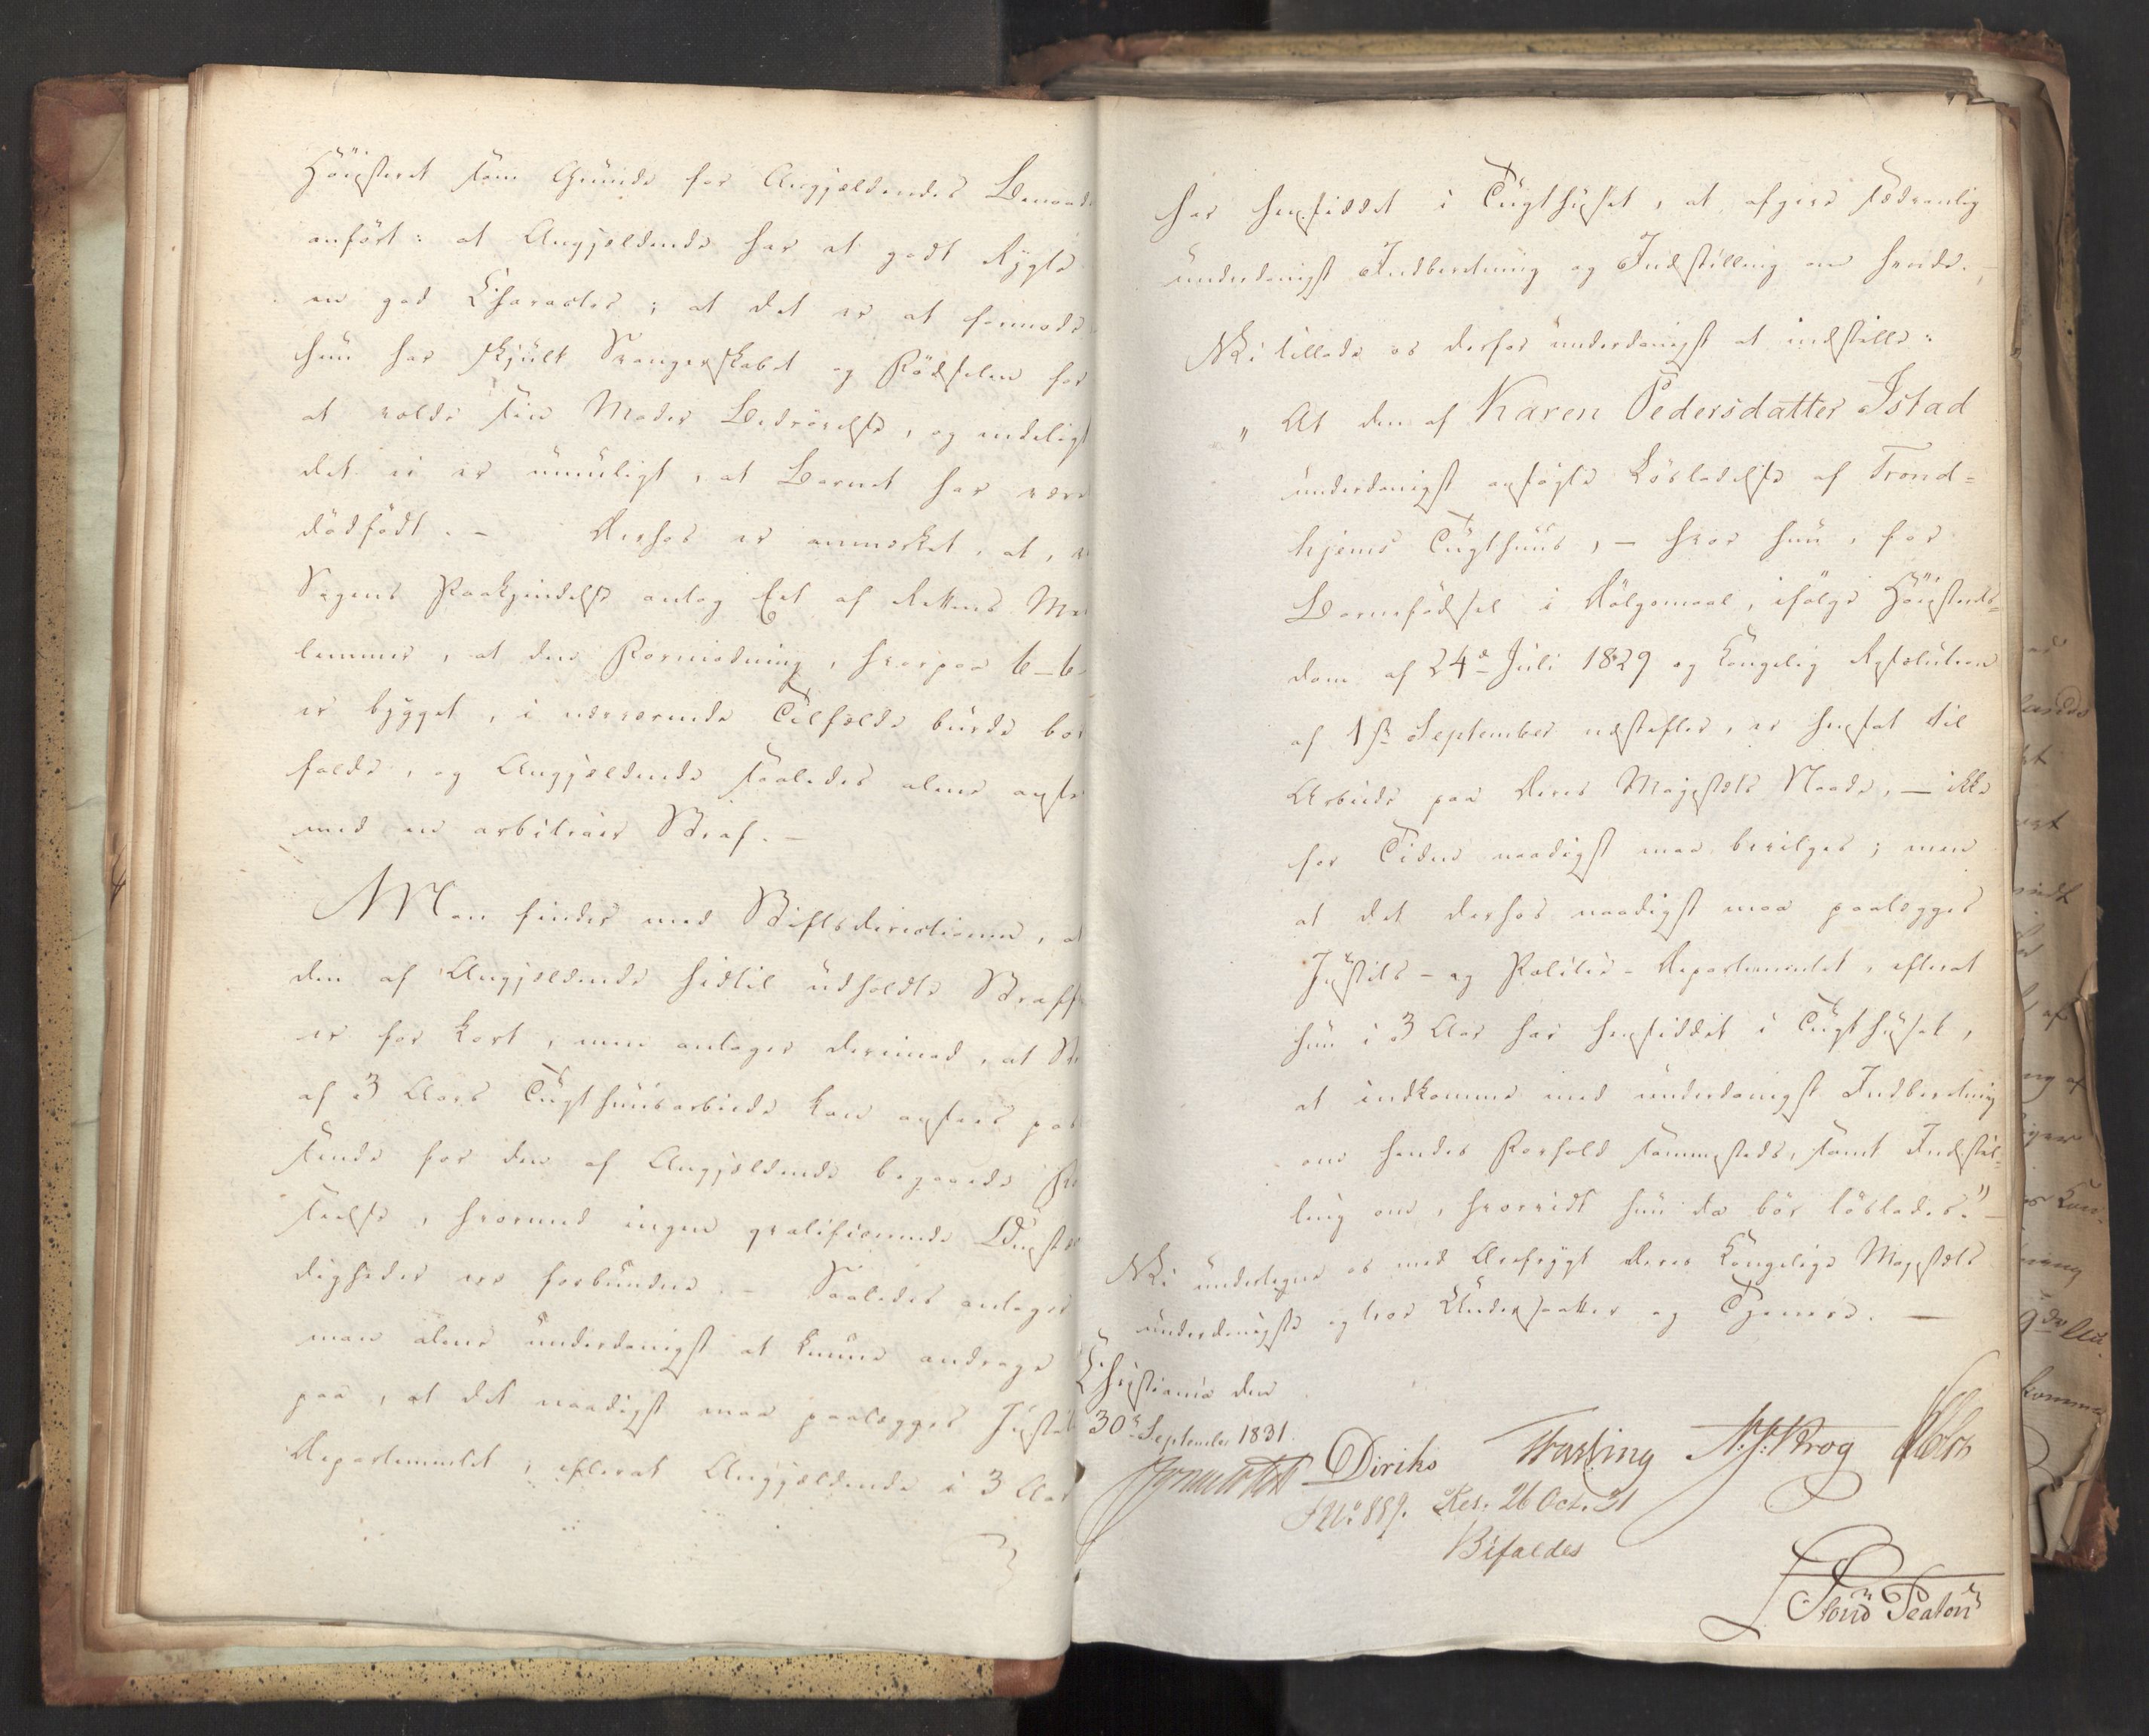 Höiesteret som Grunde for Angjældendes Benaad
anført: at Angjældende har et godt Rygte
en god Character; at det er at formode
hun har skjült Svangerskabet og Födselen for
at volde sin Moder Bedrövelse, og endeligt
det ei er umüligt, at Barnet har være
dödfödt. – Derhos er anmærket, at, v
Sagens Paakjendelse antog Eet af Rettens Me
lemmer, at den Formodning, hvorpaa 6–6–
er bygget, i nærværende Tilfælde burde bor
falde, og Angjældende saaledes alene ansee
med en arbitrair Straf. –
Man finder med Stiftsdirectionen, a
den af Angjældende hidtil udholdte Straffe
er for kort, men antager derimod, at St
af 3 Aars Tugthuusarbeide kan ansees pas
sende for den af Angjældende begaaede For
seelse, hvormed ingen qvalificerende Omstæn
digheder ere forbundne. – Saaledes antager
man alene underdanigst at kunne andrage
paa, at det naadigst maa paalægges Justits
Departementet, efterat Angjældende i 3 Aar
har hensiddet i Tugthuset, at afgive sædvanlig
underdanigst Indberetning og Indstilling om hende.
Vi tillade os derfor underdanigst at indstille:
„At den af Karen Pedersdatter Istad
underdanigst ansøgte Løsladelse af Trond=
hjems Tugthuus, – hvor hun, for
Barnefødsel i Dølgsmaal, ifølge Höiesterets=
dom af 24de Juli 1829 og Kongelig Resolution
af 1ste September næstefter, er hensat til
Arbeide paa Deres Majestæts Naade, – ikke
for Tiden naadigst maa bevilges; men
at det derhos naadigst maa paalægges
Justits- og Politie-Departementet, efterat
hun i 3 Aar har hensiddet i Tugthuset,
at indkomme med underdanigst Indberetning
om hendes Forhold sammesteds, samt Indstil=
ling om, hvorvidt hun da bör löslades." –
Vi undertegne os med Ærefrygt Deres Kongelige Majestæts
underdanigste og troe Undersaatter og Tjenere. –
Christiania den
30te September 1831.
Diriks Fasting N. J. Krog Holst
No 889. Res. 26 Oct. 31
Bifaldes